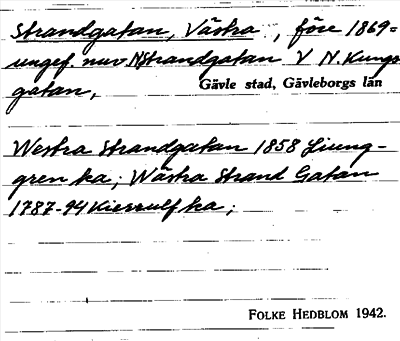 Strandgatan, Västra, före 1869=
ungef. nuv N Strandgatan V N. Kungs
gatan,
Gävle stad, Gävleborgs län
Westra Strandgatan 1858 Ljung-
gren ka; Wästra Strand Gatan
1787-94 Kierrulf ka;
FOLKE HEDBLOM 1942.